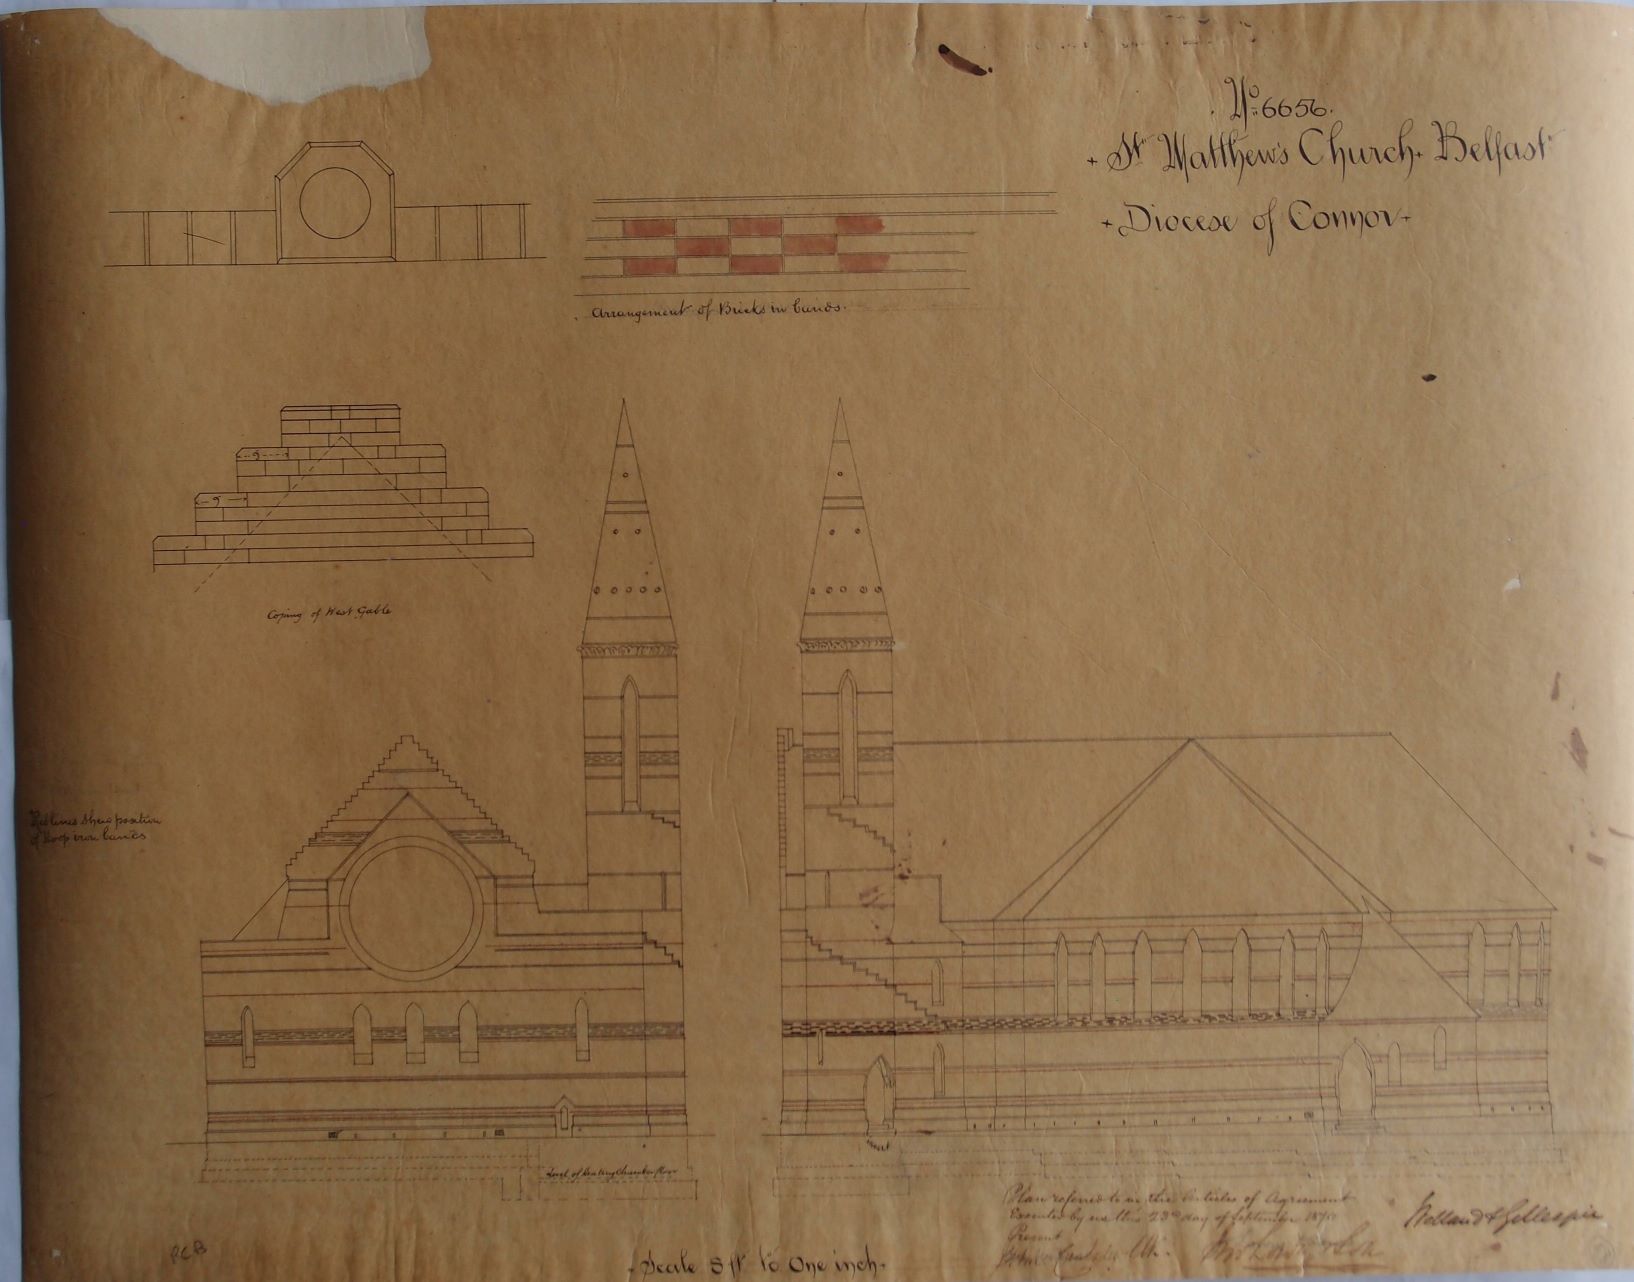 No. 6656.
+ St. Matthew's Church. Belfast
+ Diocese of Connor +
Arrangement of Bricks in bands.
9
9
Coping of West Gable
Red lines shew position
of Hoop iron bands
Level of Heating Chamber floor
Plan referred to in the Articles of Agreement
Executed by me this 23rd day of September 1870
Present
Welland & Gillespie
& Son
RCB
Scale 8 ft to One inch.